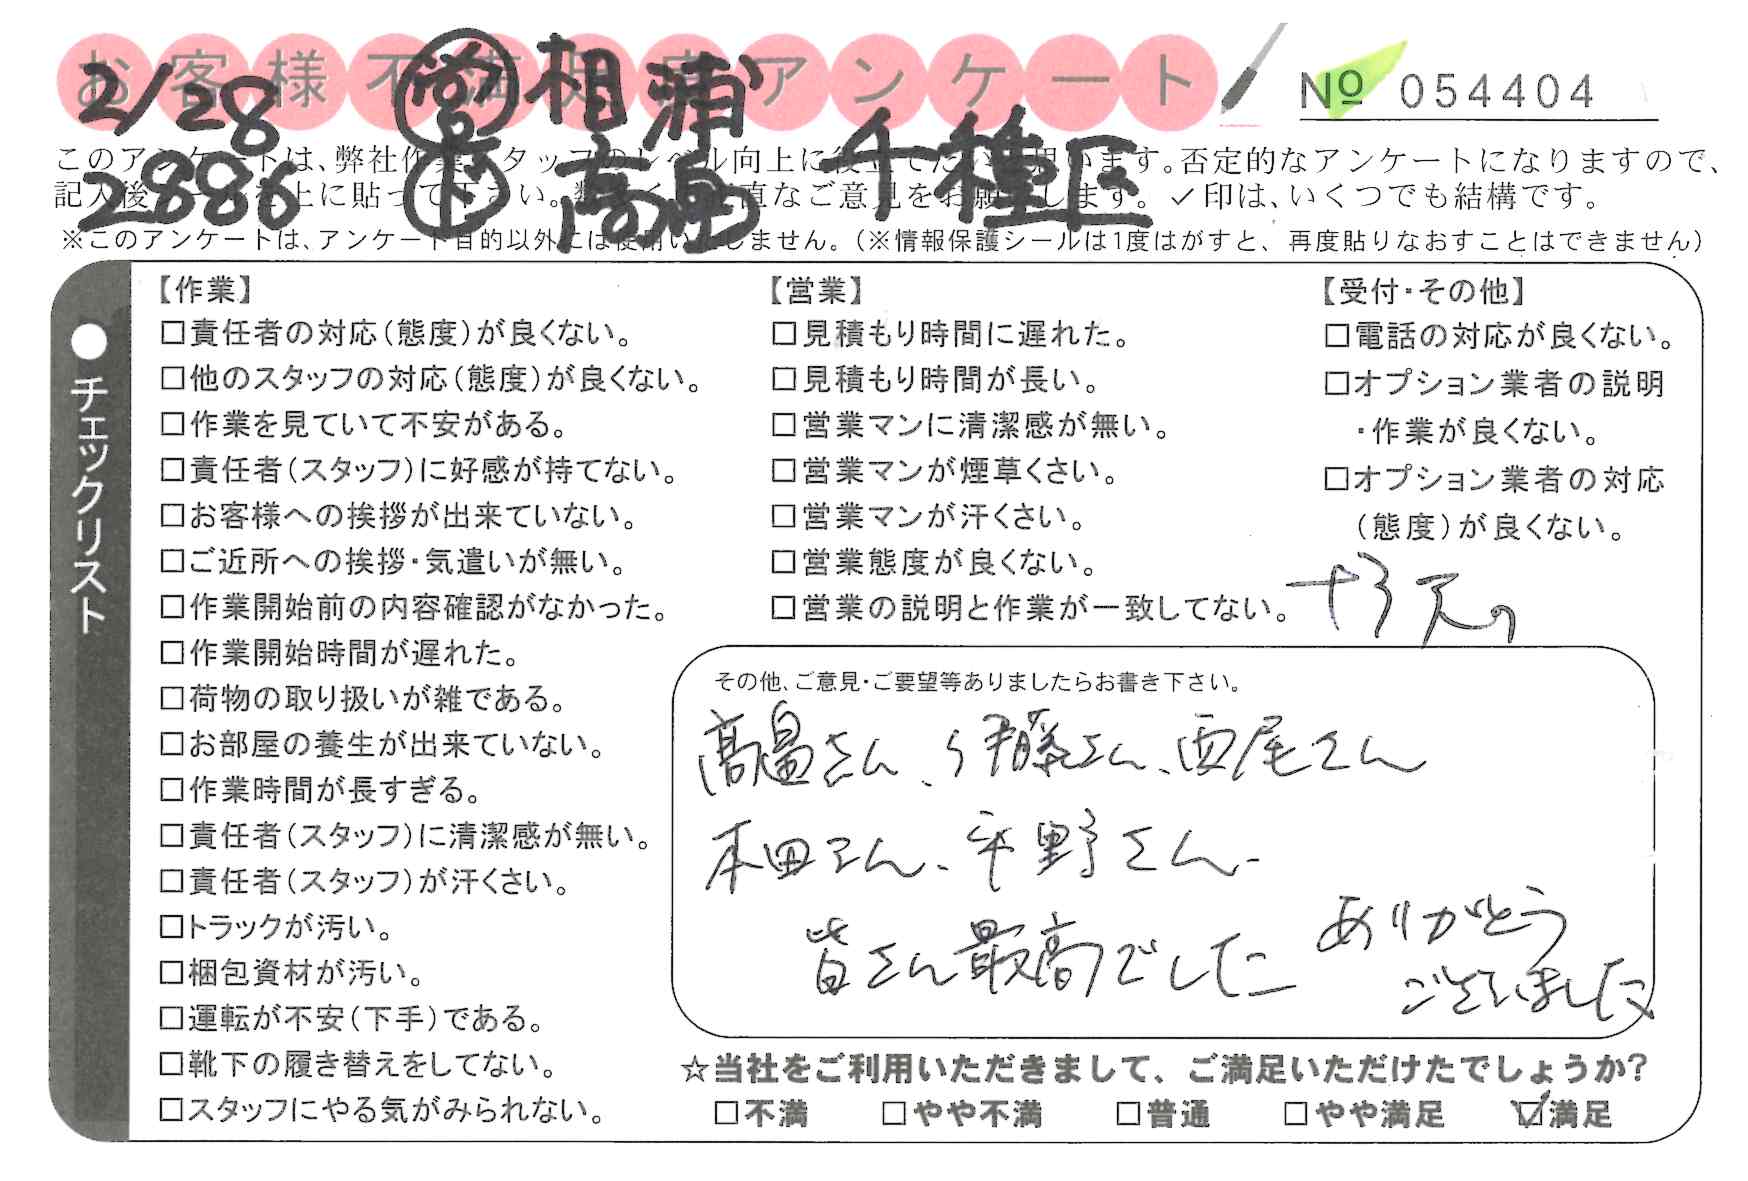 お客様不満足度アンケート
№ 054404
2/28 営 相浦
2886 下 高畠 千種区
このアンケートは、弊社作業スタッフのレベル向上に役立てたいと思います。否定的なアンケートになりますので、
記入後、シールを上に貼って下さい。数多くの正直なご意見をお願いします。✓印は、いくつでも結構です。
※このアンケートは、アンケート目的以外には使用いたしません。（※情報保護シールは1度はがすと、再度貼りなおすことはできません）
●チェックリスト
【作業】
□責任者の対応（態度）が良くない。
□他のスタッフの対応（態度）が良くない。
□作業を見ていて不安がある。
□責任者（スタッフ）に好感が持てない。
□お客様への挨拶が出来ていない。
□ご近所への挨拶・気遣いが無い。
□作業開始前の内容確認がなかった。
□作業開始時間が遅れた。
□荷物の取り扱いが雑である。
□お部屋の養生が出来ていない。
□作業時間が長すぎる。
□責任者（スタッフ）に清潔感が無い。
□責任者（スタッフ）が汗くさい。
□トラックが汚い。
□梱包資材が汚い。
□運転が不安（下手）である。
□靴下の履き替えをしてない。
□スタッフにやる気がみられない。
【営業】
□見積もり時間に遅れた。
□見積もり時間が長い。
□営業マンに清潔感が無い。
□営業マンが煙草くさい。
□営業マンが汗くさい。
□営業態度が良くない。
□営業の説明と作業が一致してない。
【受付・その他】
□電話の対応が良くない。
□オプション業者の説明
・作業が良くない。
□オプション業者の対応
（態度）が良くない。
その他、ご意見・ご要望等ありましたらお書き下さい。
高畠さん、伊藤さん、西尾さん
本田さん、平野さん、
皆さん最高でした
ありがとう
ございました
☆当社をご利用いただきまして、ご満足いただけたでしょうか?
□不満 □やや不満 □普通 □やや満足 ☑満足